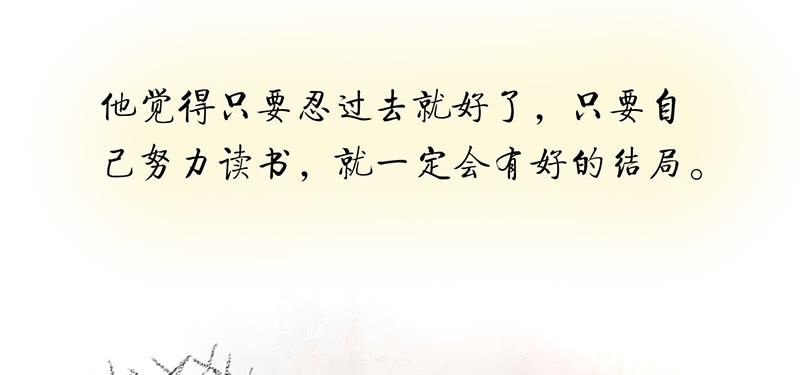 他觉得只要忍过去就好了，只要自
己努力读书，就一定会有好的结局。